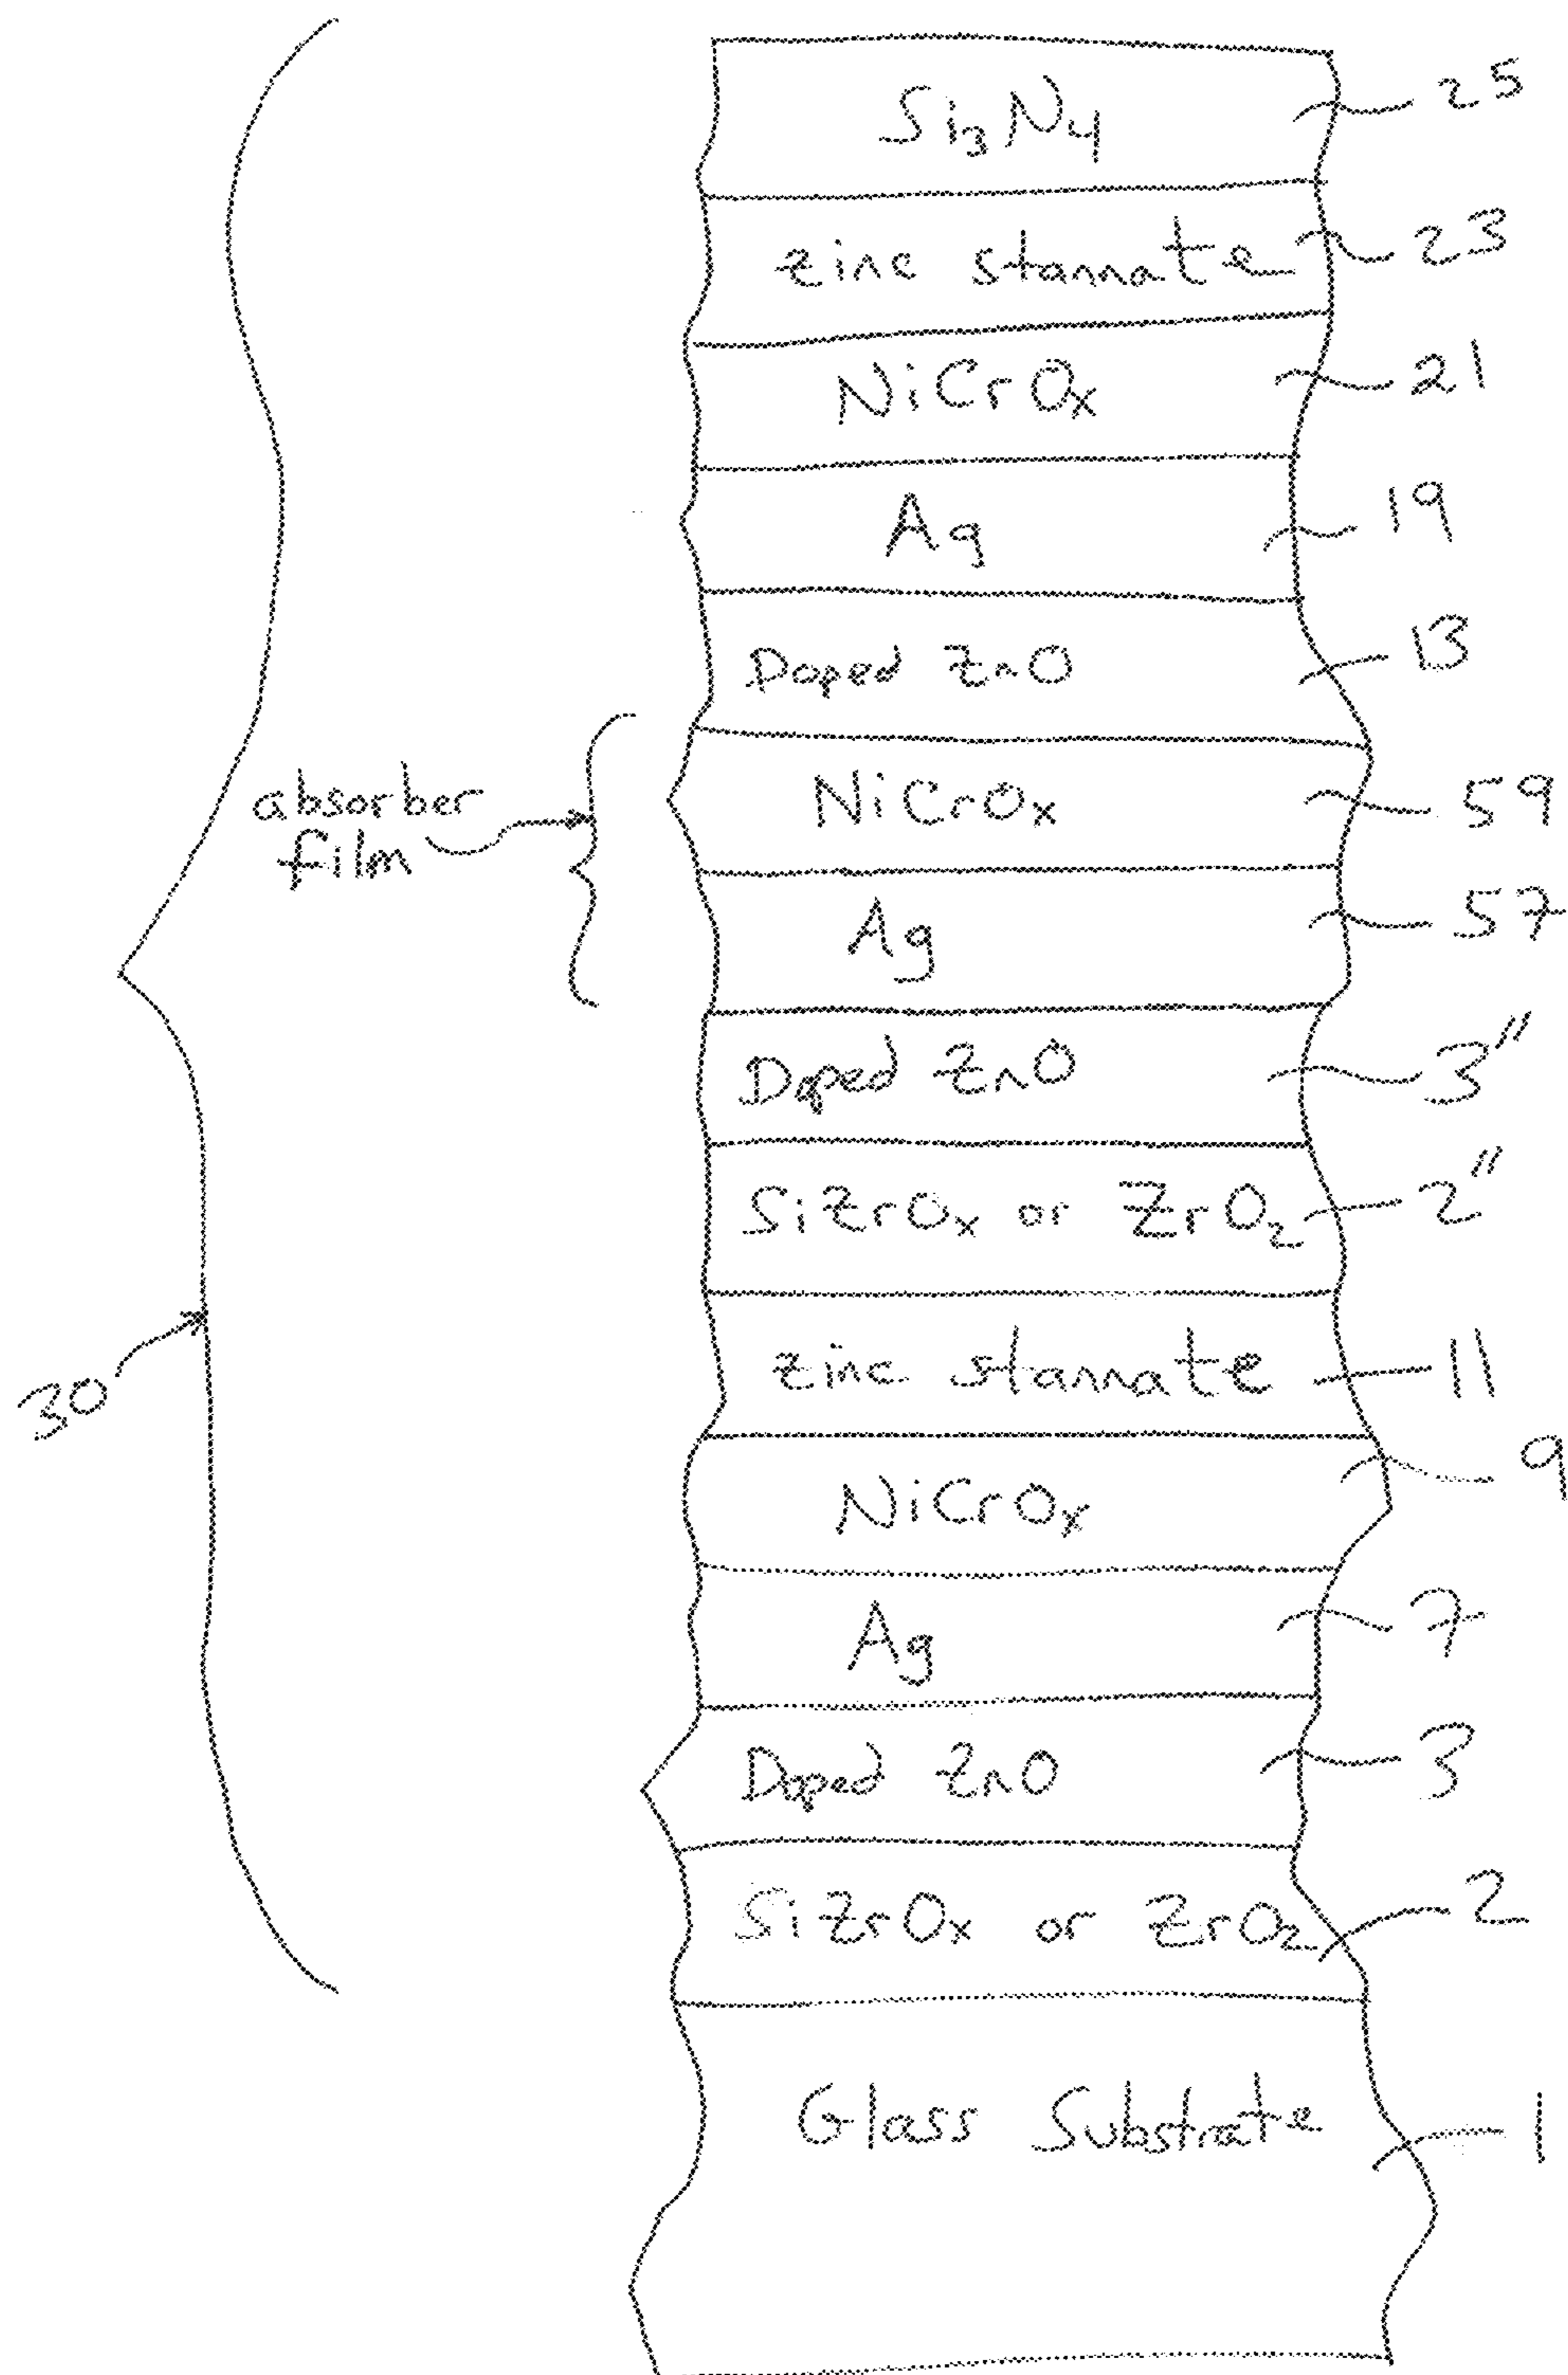 Si3N4 25
zinc stannate 23
NiCrOx 21
Ag 19
Doped ZnO 13
absorber
film
NiCrOx 59
Ag 57
Doped ZnO 3"
SiZrOx or ZrO2 2"
zinc stannate 11
30
NiCrOx 9
Ag 7
Doped ZnO 3
SiZrOx or ZrO2 2
Glass Substrate 1